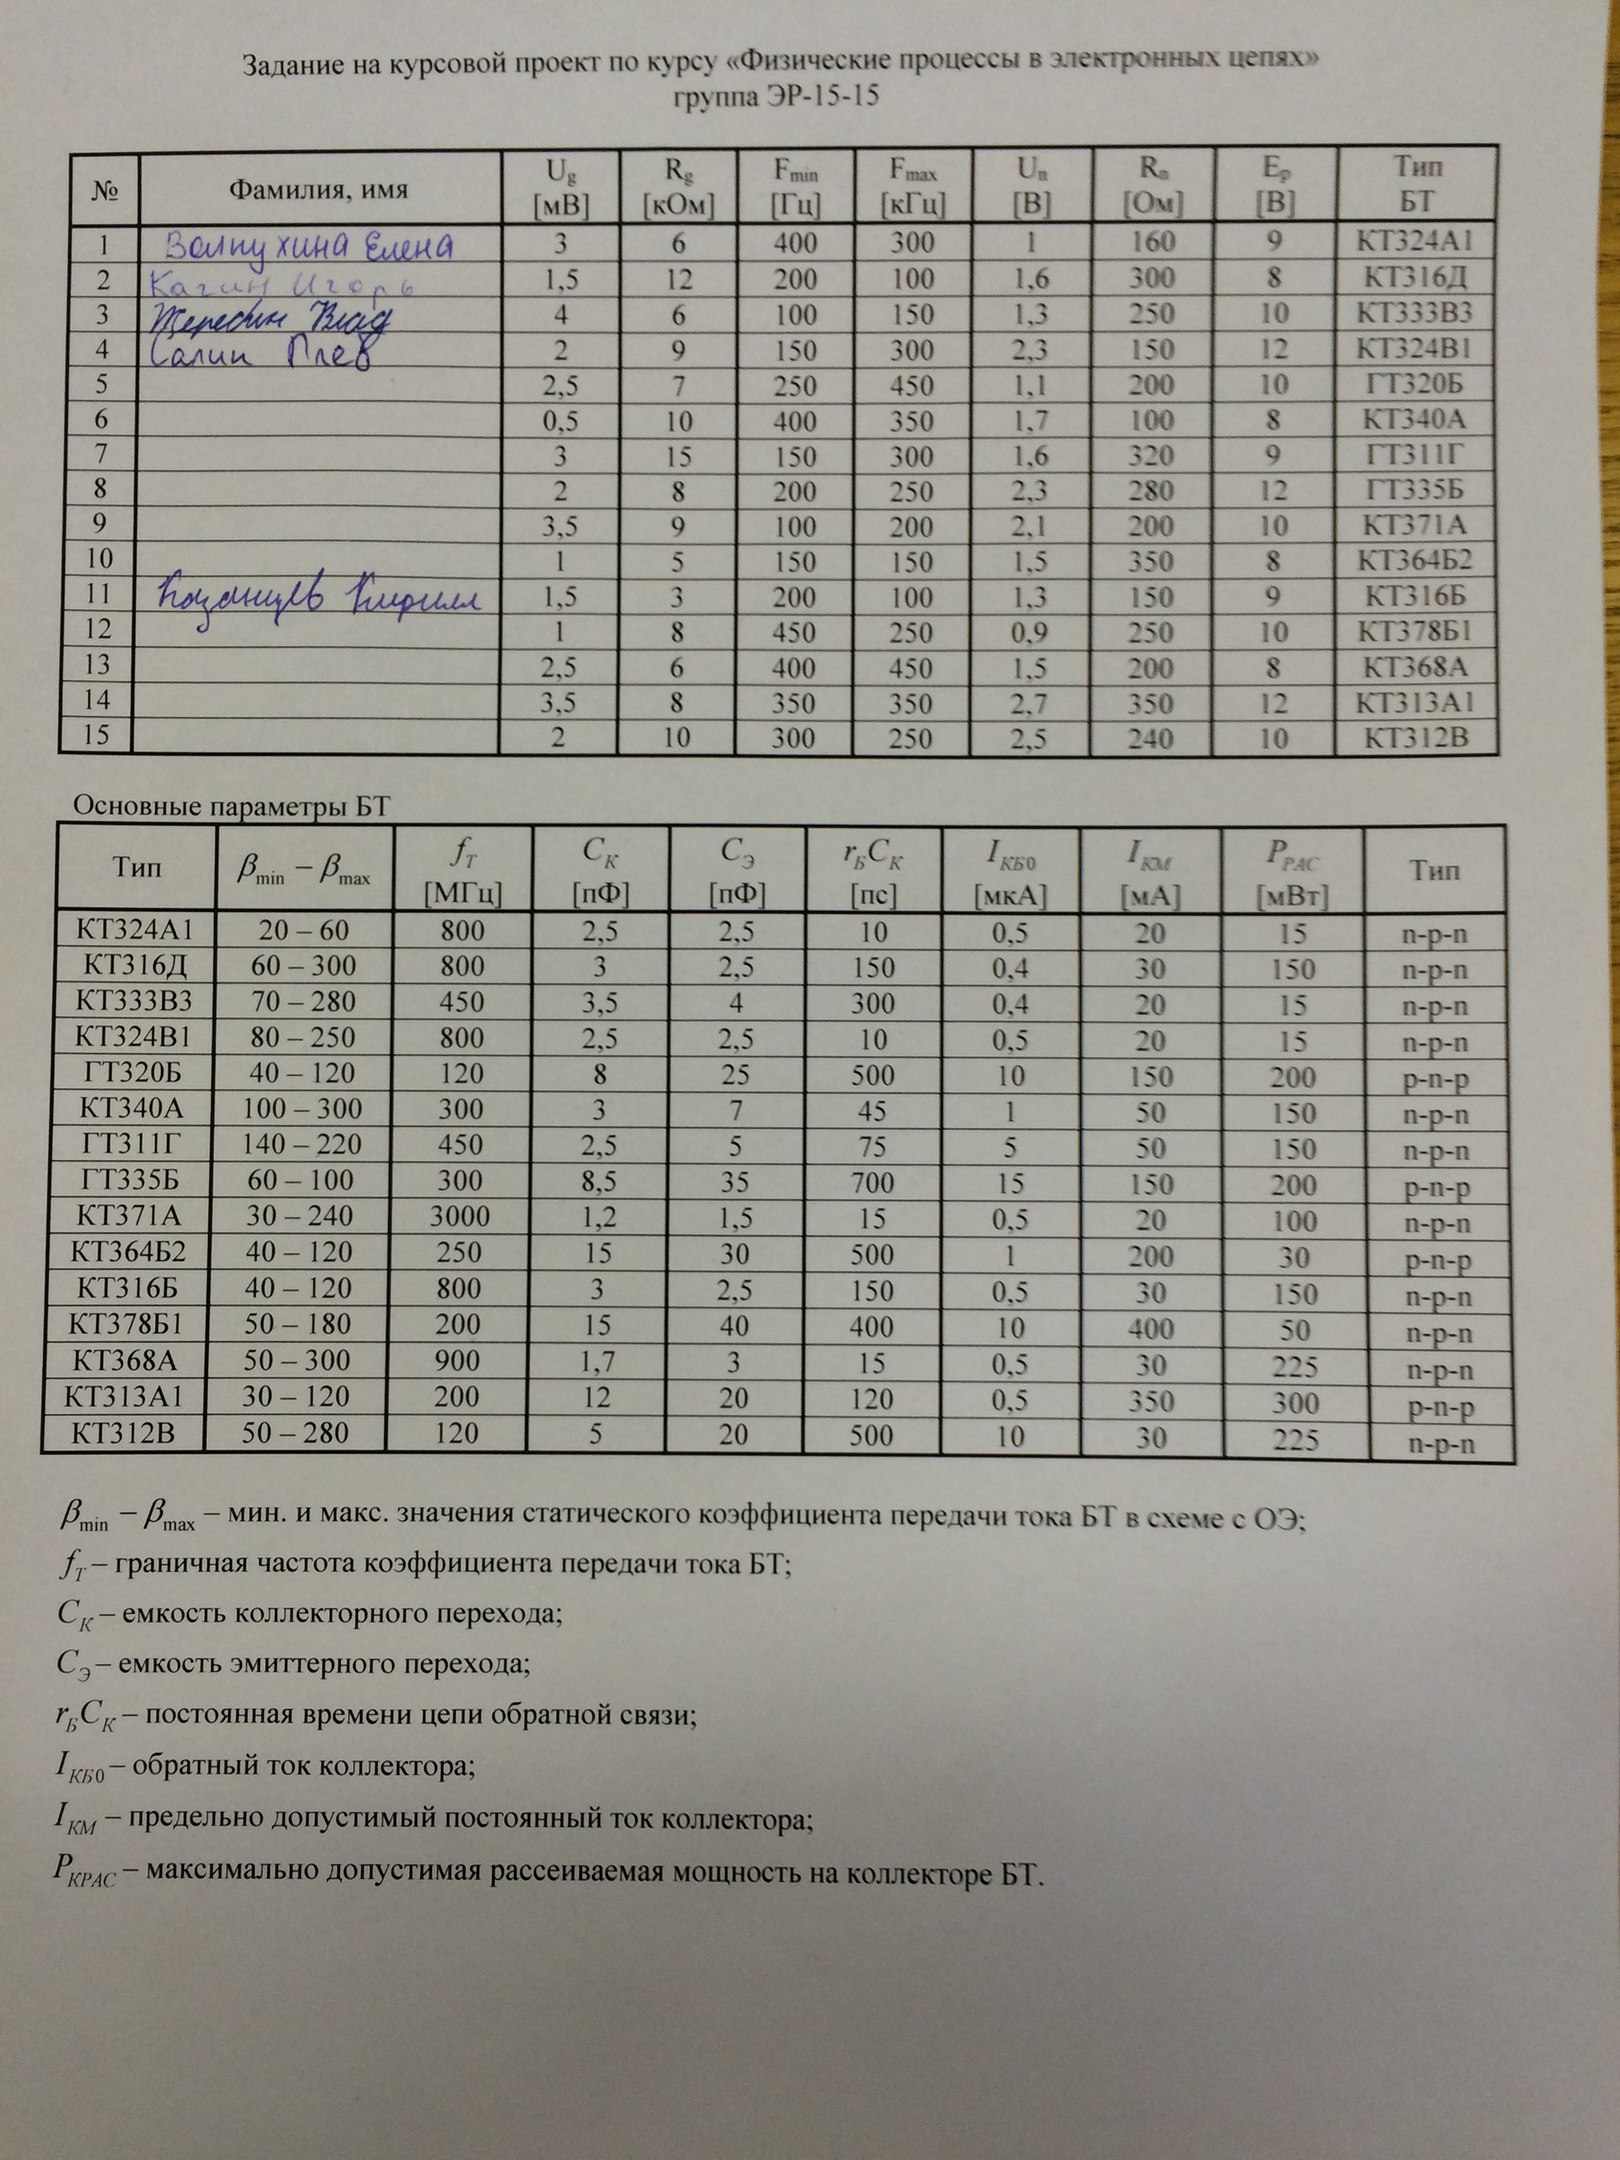 Задание на курсовой проект по курсу «Физические процессы в электронных цепях»
группа ЭР-15-15
№ Фамилия, имя Ug [мВ] Rg [кОм] Fmin [Гц] Fmax [кГц] Uн [В] Rн [Ом] Ep [В] Тип БТ
1 Волпухина Елена 3 6 400 300 1 160 9 КТ324А1
2 Качин Игорь 1,5 12 200 100 1,6 300 8 КТ316Д
3 Влад 4 6 100 150 1,3 250 10 КТ333В3
4 Салин Глеб 2 9 150 300 2,3 150 12 КТ324В1
5 2,5 7 250 450 1,1 200 10 ГТ320Б
6 0,5 10 400 350 1,7 100 8 КТ340А
7 3 15 150 300 1,6 320 9 ГТ311Г
8 2 8 200 250 2,3 280 12 ГТ335Б
9 3,5 9 100 200 2,1 200 10 КТ371А
10 1 5 150 150 1,5 350 8 КТ364Б2
11 Казанцев Кирилл 1,5 3 200 100 1,3 150 9 КТ316Б
12 1 8 450 250 0,9 250 10 КТ378Б1
13 2,5 6 400 450 1,5 200 8 КТ368А
14 3,5 8 350 350 2,7 350 12 КТ313А1
15 2 10 300 250 2,5 240 10 КТ312В
Основные параметры БТ
Тип βmin – βmax fT [МГц] CК [пФ] CЭ [пФ] rБCК [пс] IКБ0 [мкА] IКМ [мА] PРАС [мВт] Тип
КТ324А1 20 – 60 800 2,5 2,5 10 0,5 20 15 n-p-n
КТ316Д 60 – 300 800 3 2,5 150 0,4 30 150 n-p-n
КТ333В3 70 – 280 450 3,5 4 300 0,4 20 15 n-p-n
КТ324В1 80 – 250 800 2,5 2,5 10 0,5 20 15 n-p-n
ГТ320Б 40 – 120 120 8 25 500 10 150 200 p-n-p
КТ340А 100 – 300 300 3 7 45 1 50 150 n-p-n
ГТ311Г 140 – 220 450 2,5 5 75 5 50 150 n-p-n
ГТ335Б 60 – 100 300 8,5 35 700 15 150 200 p-n-p
КТ371А 30 – 240 3000 1,2 1,5 15 0,5 20 100 n-p-n
КТ364Б2 40 – 120 250 15 30 500 1 200 30 p-n-p
КТ316Б 40 – 120 800 3 2,5 150 0,5 30 150 n-p-n
КТ378Б1 50 – 180 200 15 40 400 10 400 50 n-p-n
КТ368А 50 – 300 900 1,7 3 15 0,5 30 225 n-p-n
КТ313А1 30 – 120 200 12 20 120 0,5 350 300 p-n-p
КТ312В 50 – 280 120 5 20 500 10 30 225 n-p-n
βmin – βmax – мин. и макс. значения статического коэффициента передачи тока БТ в схеме с ОЭ;
fT – граничная частота коэффициента передачи тока БТ;
CК – емкость коллекторного перехода;
CЭ – емкость эмиттерного перехода;
rБCК – постоянная времени цепи обратной связи;
IКБ0 – обратный ток коллектора;
IКМ – предельно допустимый постоянный ток коллектора;
PКРАС – максимально допустимая рассеиваемая мощность на коллекторе БТ.